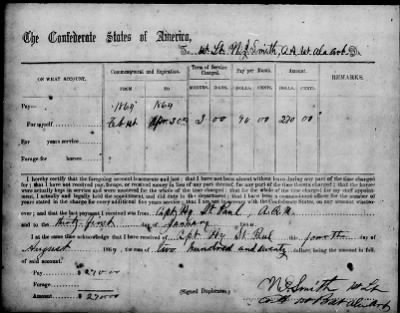 The Confederate States of America,
To W. Lt. N. J. Smith, A. A. W. Ala Art. Dr.
ON WHAT ACCOUNT.
Commencement and Expiration.
Term of Service Charged.
Pay per Month.
Amount.
REMARKS.
FROM
TO
MONTHS. DAYS.
DOLLS. CTS.
DOLLS. CTS.
Pay—
1864 1864
For myself 3 00 90 00 270 00
For years service
Forage for horses
I hereby certify that the foregoing account is accurate and just: that I have not been absent without leave during any part of the time charged
for; that I have not received pay, forage, or received money in lieu of any part thereof, for any part of the time therein charged; that the horses
were actually kept in service and were mustered for the whole of the time charged; that for the whole of the time charged for my staff appointment,
I actually and legally held the appointment, and did duty in the department; that I have been a commissioned officer for the number of
years stated in the charge for every additional five years service; that I am not in arrears with the Confederate States, on any account whatsoever;
and that the last payment I received was from Capt Hy St Paul, A.Q.M.
and to the thirty first day of January
I at the same time acknowledge that I have received of Capt Hy St. Paul this fourth day of
August 1864, the sum of two hundred and seventy dollars, being the amount in full
of said account.
Pay - $ 270.00
Forage
Amount, $ 270.00
(Signed Duplicates.)
N J Smith